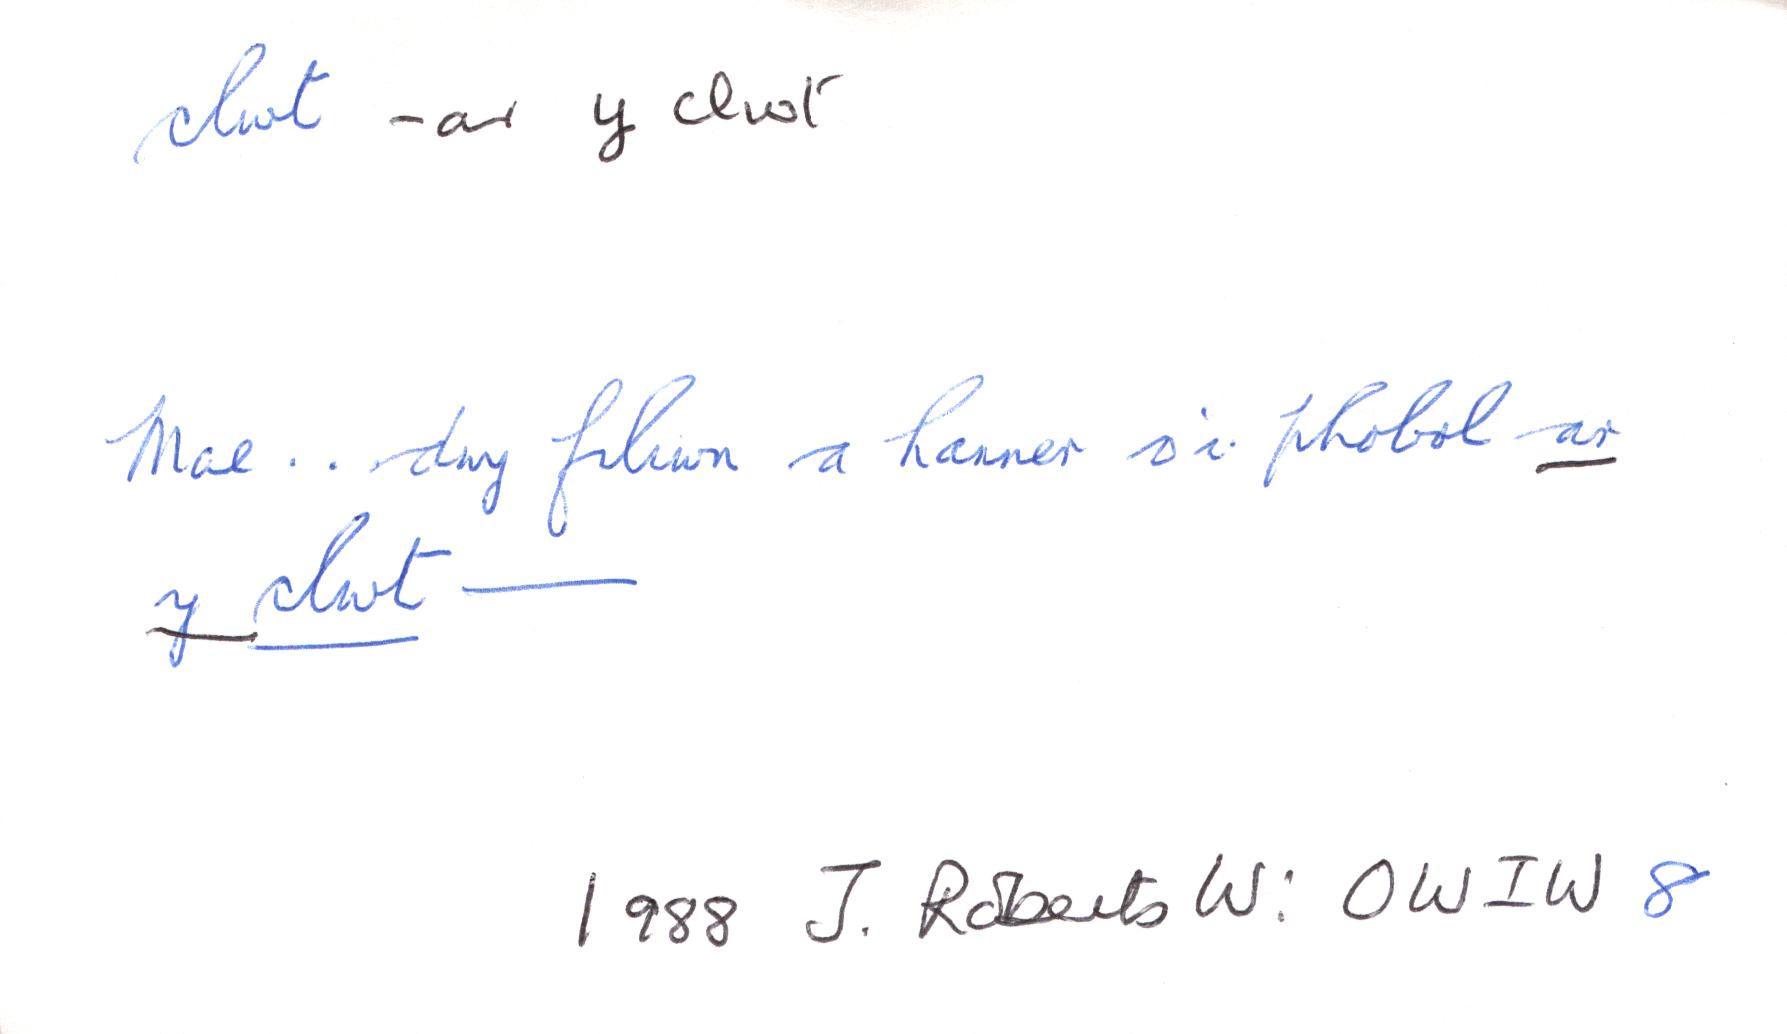 clwt - ar y clwt
Mae ... dwy filiwn a hanner o'i phobol ar
y clwt —
1988 J. Roberts W: OWIW 8